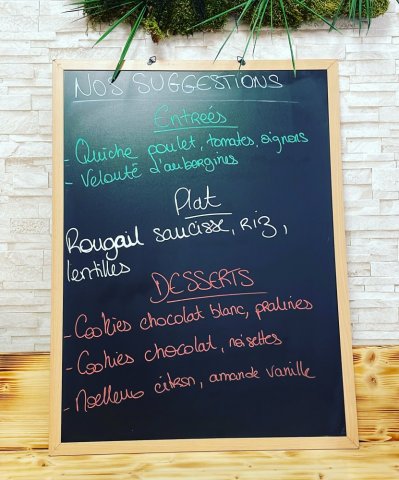 NOS SUGGESTIONS
Entrées
- Quiche poulet, tomates, oignons
- Velouté d'aubergines
Plat
Rougail saucisse, riz,
lentilles
DESSERTS
- Cookies chocolat blanc, pralines
- Cookies chocolat, noisettes
- Moelleux citron, amande vanille